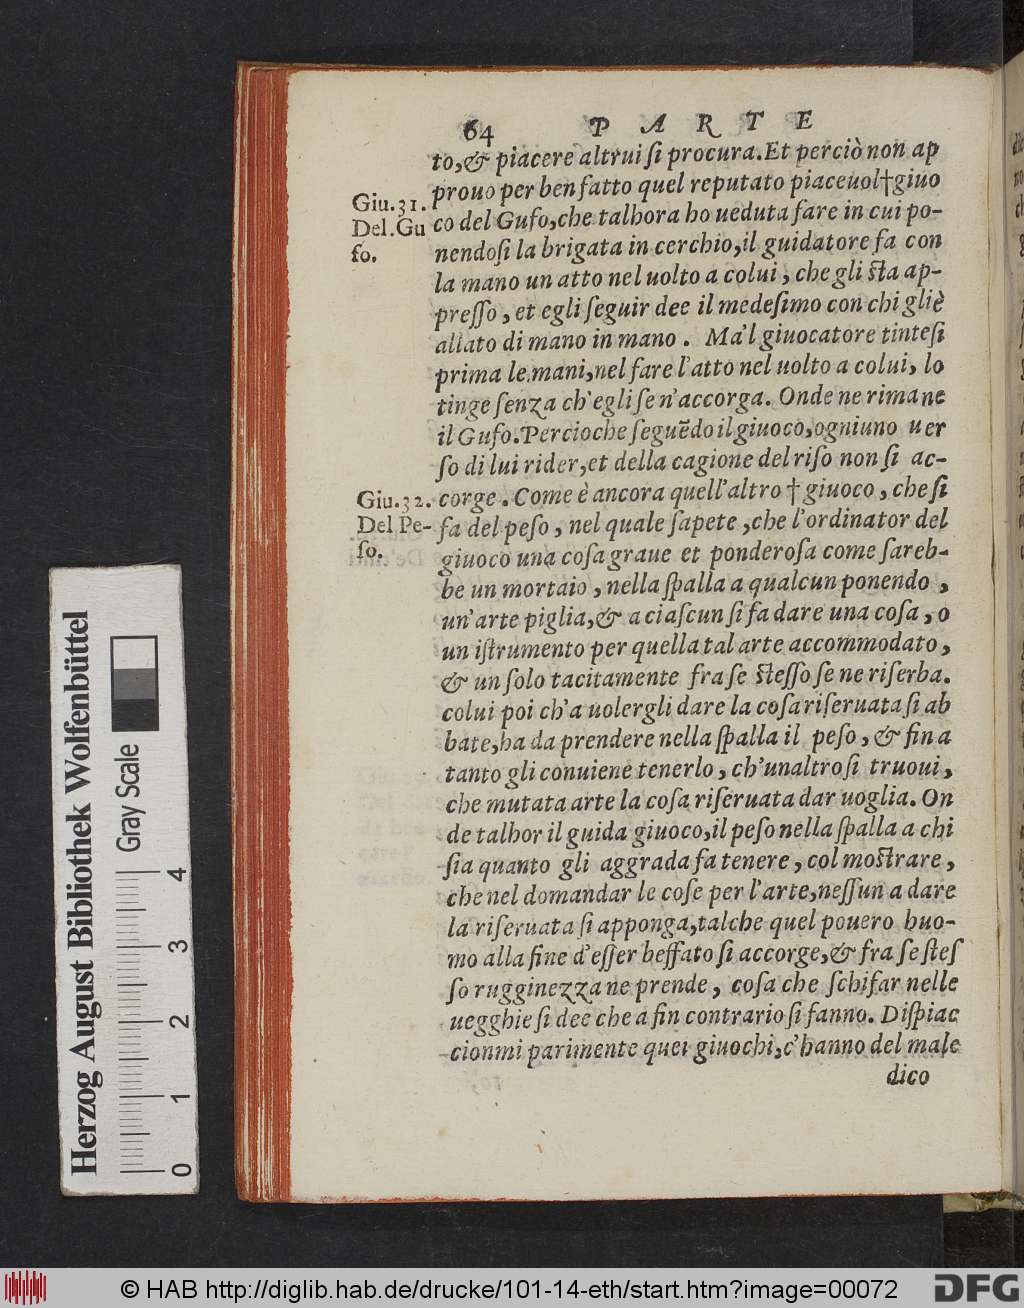 64 PARTE
to,& piacere altrui ſi procura.Et perciò non ap
prouo per ben fatto quel reputato piaceuol†giuo
Giu.31.
Del.Gu
fo.
co del Gufo,che talhora ho ueduta fare in cui po-
nendoſi la brigata in cerchio,il guidatore fa con
la mano un atto nel uolto a colui, che gli ſta ap-
preſſo, et egli ſeguir dee il medeſimo con chi gliè
allato di mano in mano. Ma'l giuocatore tinteſi
prima le mani,nel fare l'atto nel uolto a colui, lo
tinge ſenza ch'egli ſe n'accorga. Onde ne rimane
il Gufo.Percioche ſeguẽdo il giuoco,ogniuno uer
ſo di lui rider,et della cagione del riſo non ſi ac-
Giu.32.
Del Pe-
ſo.
corge. Come è ancora quell'altro † giuoco, che ſi
fa del peſo, nel quale ſapete, che l'ordinator del
giuoco una coſa graue et ponderoſa come ſareb-
be un mortaio, nella ſpalla a qualcun ponendo,
un'arte piglia,& a ciaſcun ſi fa dare una coſa, o
un iſtrumento per quella tal arte accommodato,
& un ſolo tacitamente fra ſe ſteſſo ſe ne riſerba.
colui poi ch'a uolergli dare la coſa riſeruata ſi ab
bate,ha da prendere nella ſpalla il peſo, & fin a
tanto gli conuiene tenerlo, ch'unaltro ſi truoui,
che mutata arte la coſa riſeruata dar uoglia. On
de talhor il guida giuoco,il peſo nella ſpalla a chi
ſia quanto gli aggrada fa tenere, col moſtrare,
che nel domandar le coſe per l'arte,neſſun a dare
la riſeruata ſi apponga,talche quel pouero huo-
mo alla fine d'eſſer beffato ſi accorge,& fra ſe ſteſ
ſo rugginezza ne prende, coſa che ſchifar nelle
uegghie ſi dee che a fin contrario ſi fanno. Diſpiac
cionmi parimente quei giuochi,c'hanno del male
dico
Herzog August Bibliothek Wolfenbüttel
Gray Scale
0 1 2 3 4
© HAB http://diglib.hab.de/drucke/101-14-eth/start.htm?image=00072
DFG